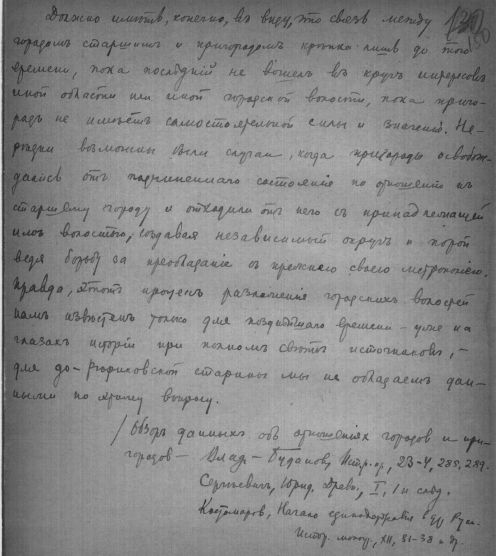 Должно имѣть, конечно, въ виду, что связь между
городомъ старшимъ и пригородомъ крѣпка лишь до того
времени, пока послѣдній не вошелъ въ кругъ интересовъ
иной области или иной городской волости, пока приго-
родъ не имѣетъ самостоятельной силы и значенія. Не-
рѣдки возможны были случаи, когда пригороды освобож-
дались отъ подчиненнаго состоянія по отношенію къ
старшему городу и отходили отъ него съ принадлежащей
имъ волостью, создавая независимый округъ и порой
ведя борьбу за преобладаніе съ прежнею своею метрополіею.
Правда, этотъ процессъ разложенія городскихъ волостей
намъ извѣстенъ только для позднѣйшаго времени – уже на
глазахъ исторіи при полномъ свѣтѣ источниковъ, –
для до-Рюриковской старины мы не обладаемъ дан-
ными по этому вопросу.
/ Обзоръ данныхъ объ отношеніяхъ городовъ и при-
городовъ – Влад.-Будановъ, 23-4, 288, 289.
Сергѣевичъ, Юрид. Древн., I, 1 и слѣд.
Костомаровъ, Начало единодержавія въ др. Руси.
Истор. моногр., XII, 31-38 и др.